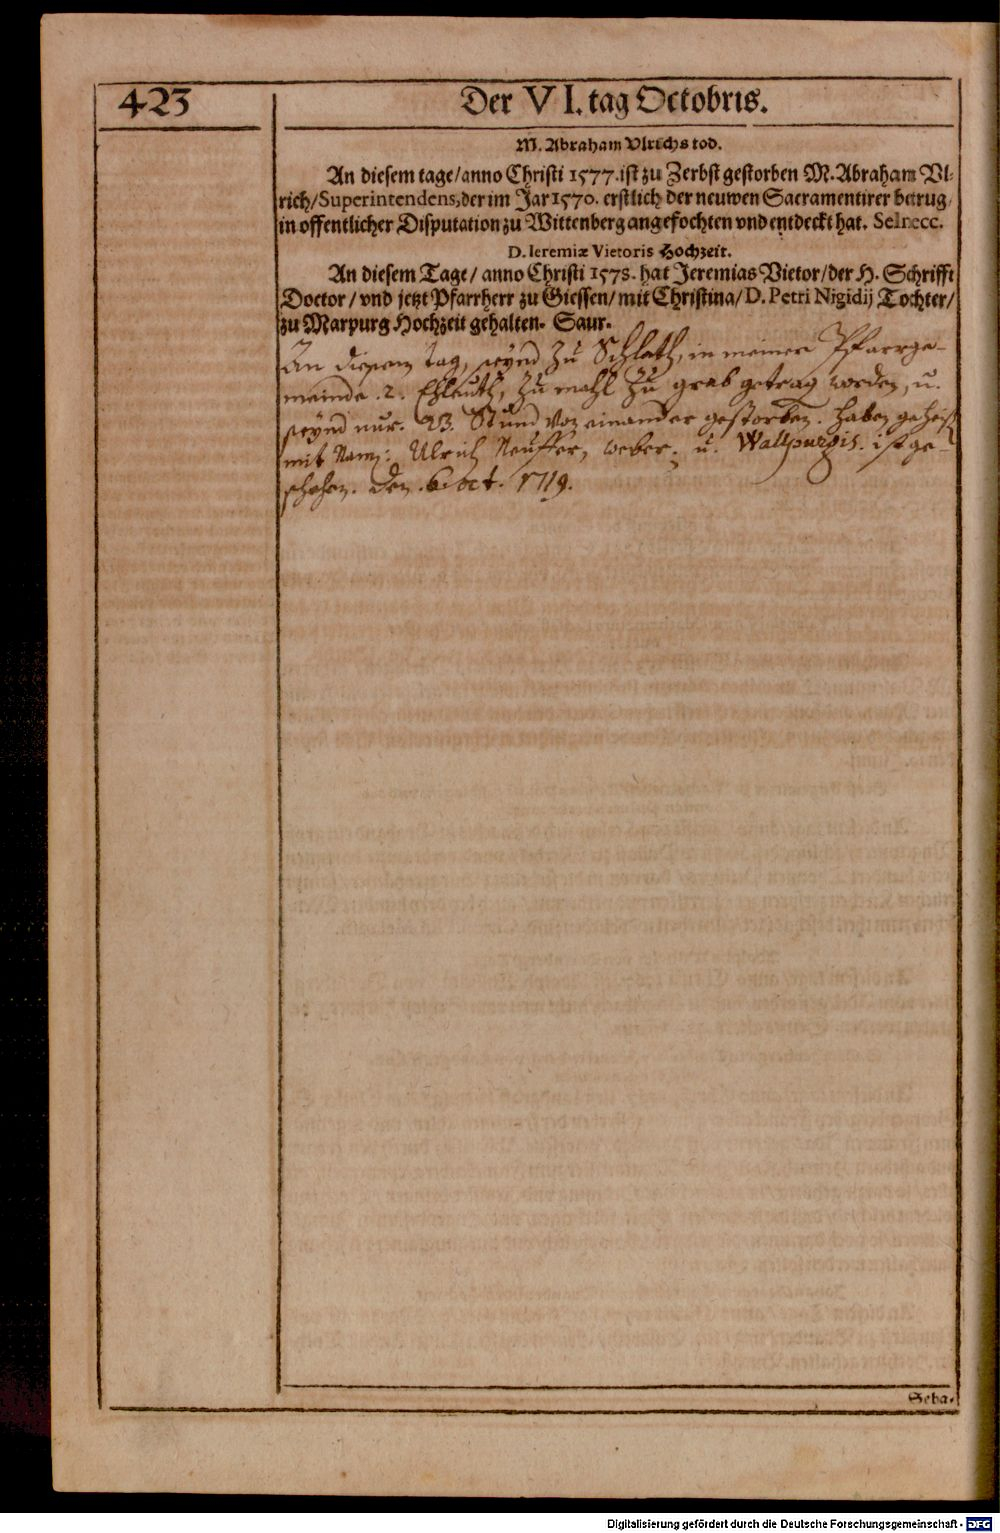 423
Der VI. tag Octobris.
M. Abraham Vlrichs tod.
An diesem tage/anno Christi 1577. ist zu Zerbst gestorben M. Abraham Vl-
rich/Superintendens, der im Jar 1570. erstlich der neuwen Sacramentirer betrug/
in offentlicher Disputation zu Wittenberg angefochten vnd entdeckt hat. Selnecc.
D. Ieremiæ Vietoris Hochzeit.
An diesem Tage/ anno Christi 1578. hat Jeremias Vietor/der H. Schrifft
Doctor/ vnd jetzt Pfarrherr zu Giessen/ mit Christina/ D. Petri Nigidij Tochter/
zu Marpurg Hochzeit gehalten. Saur.
An diesem tag, seynd zu Schlath, in meiner Pfarrge-
meinde .2. Ehleuth, zu mahl zu grab getrag worden, u.
seynd nur. 23. Stund von einander gestorben. haben geheiß
mit Nam: Ulrich Neuffer, weber. u. Wallpurgis. ist ge-
schehen. den. 6 oct. 1719.
Seba-
Digitalisierung gefördert durch die Deutsche Forschungsgemeinschaft - DFG